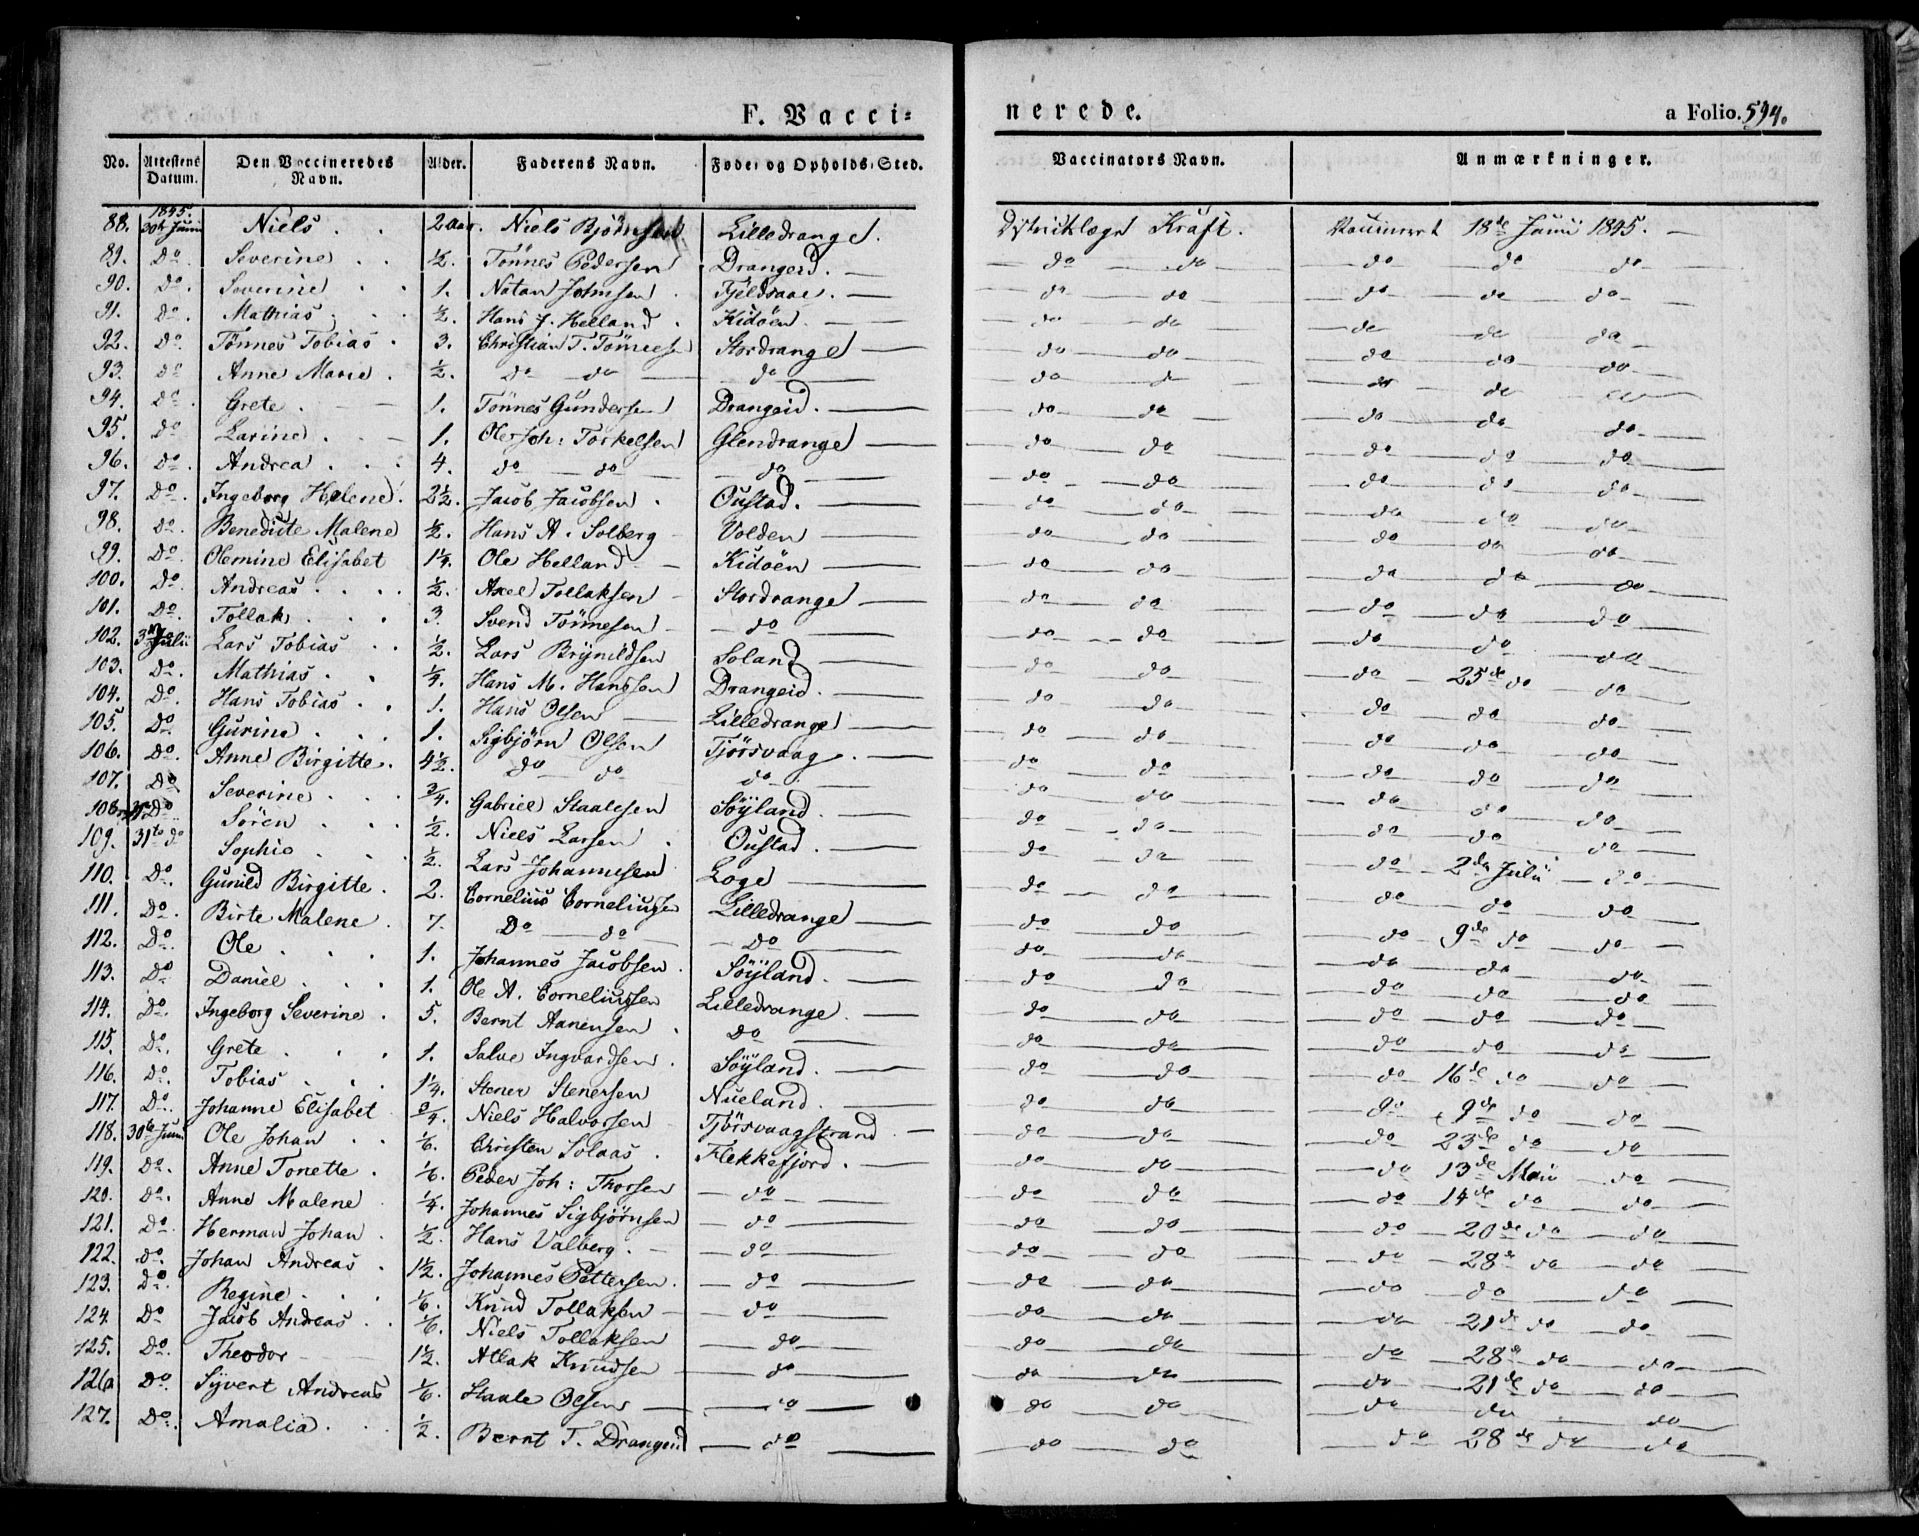 F. Vacci-
nerede.
a Folio. 594.
No. Attestens Datum. Den Vaccineredes Navn. Alder. Faderens Navn. Føde- og Opholds-Sted. Vaccinators Navn. Anmærkninger.
1845.
88. 30te Juni Niels 2 aar. Niels Björnsen Lilledrange. Distriktslæge Kraft. Vaccineret 18de Juni 1845.
89. Do Severine ½. Tönnes Pedersen Drangeid. do do do do do
90. Do. Severine 1. Natan Johnsen Fjeldsaae. do do do do do
91. Do. Mathias ½. Hans J. Helland Kidöen. do do do do do
92. Do. Tönnes Tobias 3. Christian T. Tönnesen Stordrange do do do do do
93. do Anne Marie ½. Do do do do do do do
94. Do. Grete 1. Tönnes Gundersen Drangeid. do do do do do
95. Do Larine 1. Ole Joh: Torkelsen Glendrange do do do do do
96. Do. Andrea 4. do do do do do do do do
97. Do. Ingeborg Helene 2½. Jacob Jacobsen Oustad. do do do do do
98. do. Benedicte Malene ½. Hans A. Solberg Volden do do do do do
99. Do. Olemine Elisabet 1¼. Ole Helland Kidöen do do do do do
100. Do Andreas ½. Axel Tollaksen Stordrange do do do do do
101. Do Tollak 3. Svend Tönnesen do do do do do do
102. 3die Julii Lars Tobias ½. Lars Brynildsen Soland do do do do do
103. Do. Mathias ¼. Hans M. Hanssen Drangeid. do do do 25de do do
104. Do. Hans Tobias 1. Hans Olsen Lilledrange do do do do do
105. Do Gurine 1. Sigbjörn Olsen Tjörsvaag. do do do do do
106. Do. Anne Birgitte 4½. Do do do do do do do do
107. Do Severine ¾. Gabriel Staalesen Söyland. do do do do do
108. Do Sören ½. Niels Larsen Oustad. do do do do do
109. 31te do Sophie ½. Lars Johannesen Loge do do do 2den Julii do
110. Do. Gunild Birgitte 2. Cornelius Corneliussen Lilledrange do do do do do
111. Do. Birte Malene 7. Do do Do do do do 9de do do
112. Do. Ole 1. Johannes Jacobsen Söyland. do do do do do
113. Do Daniel 1. Ole A. Corneliussen Lilledrange. do do do do do
114. Do Ingeborg Severine 5. Bernt Aanensen Do do do do do do
115. Do. Grete 1. Salve Ingvardsen Söyland. do do do do do
116. Do. Tobias 1¼. Stener Stenersen Nueland. do do do 16de do do
117. Do. Johanne Elisabet ¾. Niels Halvorsen Tjörsvaagstrand do do do 9de do do
118. 30te Juni Ole Johan ⅙. Christen Solaas Flekkefjord. do do do 23de do do
119. Do. Anne Tonette ⅙. Peder Joh: Thorsen do do do do 13de Maii do
120. Do. Anne Malene ¼. Johannes Sigbjörnsen do do do do 14de do do
121. Do. Herman Johan ½. Hans Valberg. do do do do 20de do do
122. do. Johan Andreas 1½. Johannes Pettersen do do do do 28de do do
123. Do. Regine ⅙. Knud Tollaksen do do do do do do
124. Do Jacob Andreas ⅙. Niels Tollaksen do do do do 21de do do
125. Do. Theodor 1½. Atlak Knudsen do do do do 28de do do
126a Do. Syvert Andreas ⅙. Staale Olsen do do do do 21de do do
127. Do. Amalia ½. Bernt T. Drangeid do do do do 28de do do